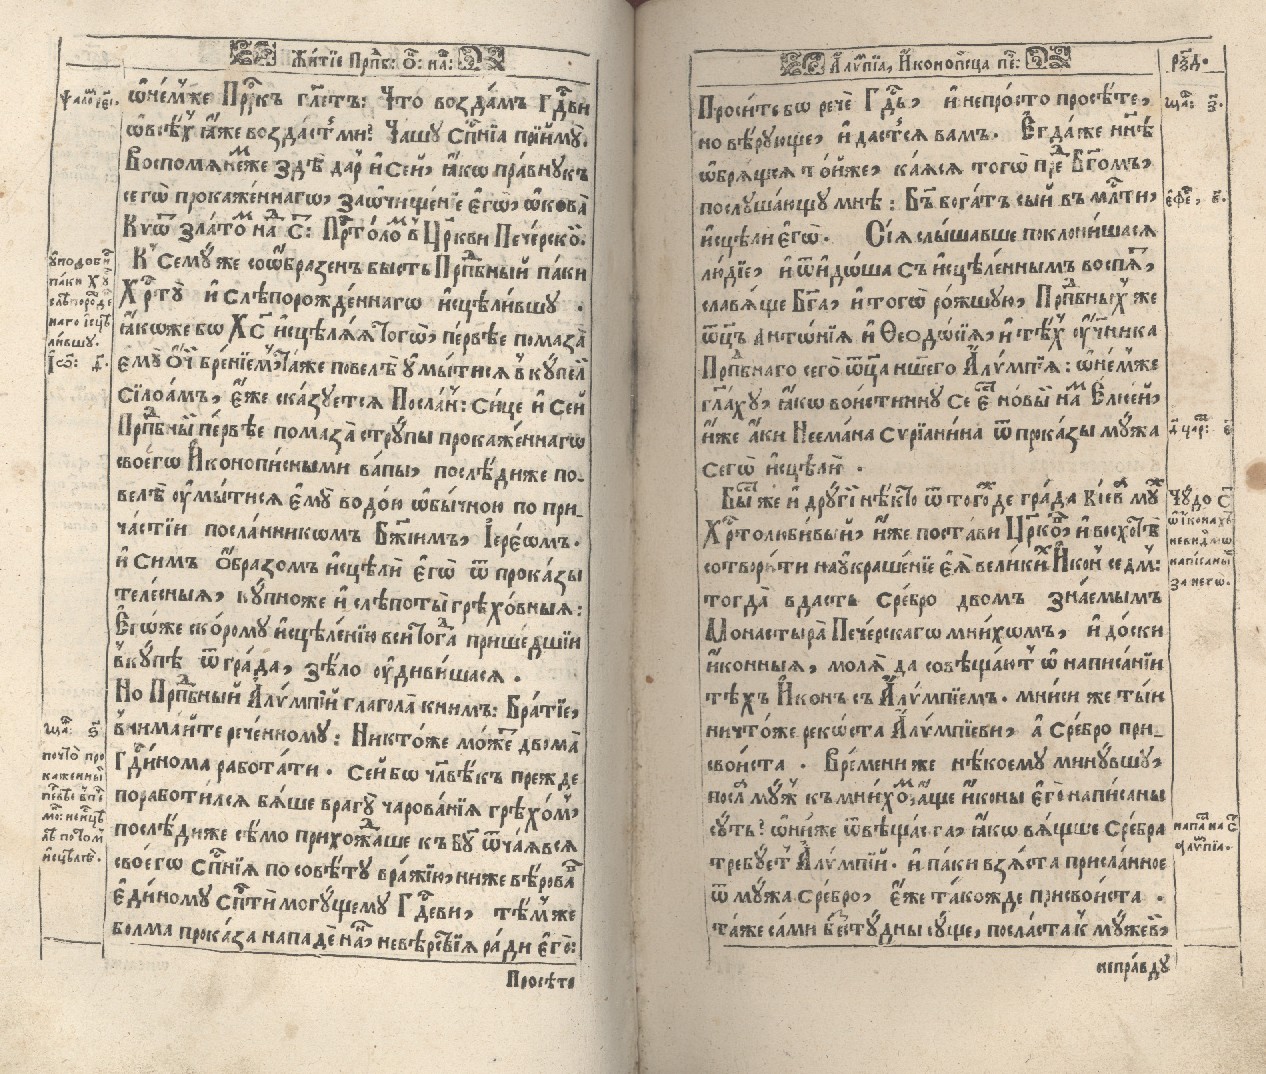 Житїе Прпⷣб: Ѻ҃ц: на҃ш:
ѡ҆не́мже Прⷪ҇ркъ гл҃етъ: Что возда́мъ Гдⷭ҇ви
ѡ҆всѣ́хъ ꙗ҆́же воздастъ ми? Чашу Сп҃нїѧ прїимꙋ̀.
Воспомѧнемже здѣ̀ да́рꙋ и҆ Сей, ꙗ҆́кѡ пра́внꙋкъ
сегѡ̀ прокаже́ннагѡ, заѡ҆чище́нїе є҆гѡ̀, ѡ҆кова̀
Кївѡ́тъ зла́томъ над̾ С: Прⷭ҇то́ломъ в̾ Цр҃кви Пече́рской.
К̾ Семꙋ́же соѡ҆бра́зенъ бысть Прпⷣбный па́ки
Хрⷭ҇тꙋ̀ и҆ слѣпорожде́ннагѡ и҆сцѣли́вшꙋ .
ꙗ҆́коже бо Хс҃ и҆сцѣлѧ́ѧ того̀, пе́рвѣе помаза̀
є҆мꙋ̀ ѻ҆́чи бре́нїемъ, та́же повелѣ̀ ᲂу҆мы́тисѧ в̾ кꙋпе́ли
Сїлоа́мъ, є҆́же ска́зꙋетсѧ По́сланъ: Си́це и҆ Сей
Прпⷣбный пе́рвѣе помаза̀ стрꙋ́пы прокаже́ннагѡ
своегѡ И҆конопи́сными ва́пы, послѣ́диже по-
велѣ̀ ᲂу҆мы́тисѧ є҆мꙋ̀ водо́ю ѡ҆бы́чною по при-
ча́стїи посла́нникѡмъ Бж҃їимъ, І҆ере́ѡмъ.
и҆ Симъ ѻ҆́бразомъ и҆сцѣлѝ є҆гѡ̀ ѿ прока́зы
тѣле́сныѧ, кꙋ́пноже и҆ слѣпоты̀ грѣхо́вныѧ:
Є҆гѡ́же ско́ромꙋ и҆сцѣле́нїю вси́ тогда̀ прише́дшїи
в̾кꙋ́пѣ ѿ гра́да, ѕѣ́ло ᲂу҆диви́шасѧ .
Но Прпⷣбный А҆лѵ́мпїй глагола̀ кни́мъ: Бра́тїе,
внима́йте рече́нномꙋ: Никто́же мо́жетъ двома̀
Гдⷭ҇инома рабо́тати . Се́й бо чл҃вѣ́къ пре́жде
порабо́тилсѧ бѧ́ше врагꙋ̀ чарова́нїѧ грѣхо́мъ,
послѣ́диже сѣ́мо прихожда́ше къ Бг҃ꙋ ѿча́ѧвсѧ
своегѡ Сп҃нїѧ по совѣ́тꙋ вра́жїю, ниже вѣ́рова̀
є҆ди́номꙋ Сп҃сти могꙋ́щемꙋ Гдⷭ҇еви, тѣ́мже
бо́лма прока́за нападѐ на́нь, невѣ́рствїѧ ра́ди є҆гѡ̀:
Проси́те
ѱало́мъ
ᲂу҆подо́бисѧ
па́ки Хрⷭ҇тꙋ̀
слѣпорожде́н
наго и҆сцѣ
ли́вшꙋ.
І҆ѡ: д҃.
поч́то про
каже́нный
А҆лѵ́мпїа, И҆конопи́сца пе:
рѯ҃д.
Проси́те бо речѐ Гдⷭ҇ь, и҆ непро́сто проси́те,
но вѣ́рꙋюще, и҆ да́стсѧ вамъ. Є҆гда́же нн҃ѣ
ѡ҆брѧ́щсѧ то́йже, ка́ѧсѧ тогѡ̀ пред̾ Бг҃омъ,
послꙋ́шающꙋ мнѣ̀: Бг҃ъ бога́тъ сый въ млⷭ҇ти,
и҆сцѣлѝ є҆гѡ̀. Сїѧ̀ слы́шавше поклони́шасѧ
лю́дїе, и҆ ѿи҆до́ша съ и҆сцѣле́ннымъ воспѧ́ть,
сла́вѧще Бг҃а, и҆ того̀ ро́жшꙋю, Прпⷣбныхъ же
ѿц҃ъ Антѡ́нїѧ и҆ Ѳеодо́сїѧ, и҆ тѣ́хъ ᲂу҆чн҃ика
Прпⷣбнаго сего̀ ѿц҃а на́шего А҆лѵ́мпїѧ: ѡ҆не́мже
гл҃ахꙋ, ꙗ҆́кѡ вои́стиннꙋ сѐ є҆́сть но́вый на́мъ Е҆лисе́й,
и҆́же а҆́ки Неема́на Сѵрїа́нина ѿ прока́зы мꙋ́жа
сегѡ̀ и҆сцѣлѝ .
Бы́сть же и҆ дрꙋгі́й нѣ́кто ѿ того́жде гра́да Кі́ева мꙋ́жъ
Хрⷭ҇толюби́вый, и҆́же поста́ви Цр҃ковь, и҆ восхотѣ̀
сотвори́ти наᲂукраше́нїе є҆ѧ̀ вели́кихъ И҆ко́нъ се́дмь:
тогда̀ вда́сть Сребро̀ двомъ зна́емымъ
Монастырѧ̀ Пече́рскагѡ мни́хомъ, и҆ до́ски
и҆ко́нныѧ, молѧ̀ да совѣща́ютъ ѡ҆ написа́нїи
тѣ́хъ И҆ко́нъ съ А҆лѵ́мпїемъ. мни́си же ты́и
ничто́же реко́ста А҆лѵ́мпїеви, а҆ Сре́бро при-
сво́иста . Вре́мени же нѣ́коемꙋ минꙋ́вшꙋ,
посла̀ мꙋ́жъ къ мни́хома, а҆́ще и҆ко́ны є҆гѡ̀ напи́саны
сꙋ́ть? ѡ҆ни́же ѿвѣща́ста, ꙗ҆́кѡ вѧ́щше Сребра̀
тре́бꙋетъ А҆лѵ́мпїй. и҆ па́ки взѧ́ста при́сланное
ѿ мꙋ́жа Сре́бро, є҆́же та́кожде присво́иста .
та́же са́ми безстꙋ́дны сꙋ́ще, посла́ста к̾ мꙋ́жеви,
непра́вдꙋ
є҆фе, в҃.
Чꙋ́до С
ѡ҆ и҆ко́нахъ
неви́димѡ
напи́саны
за него̀.